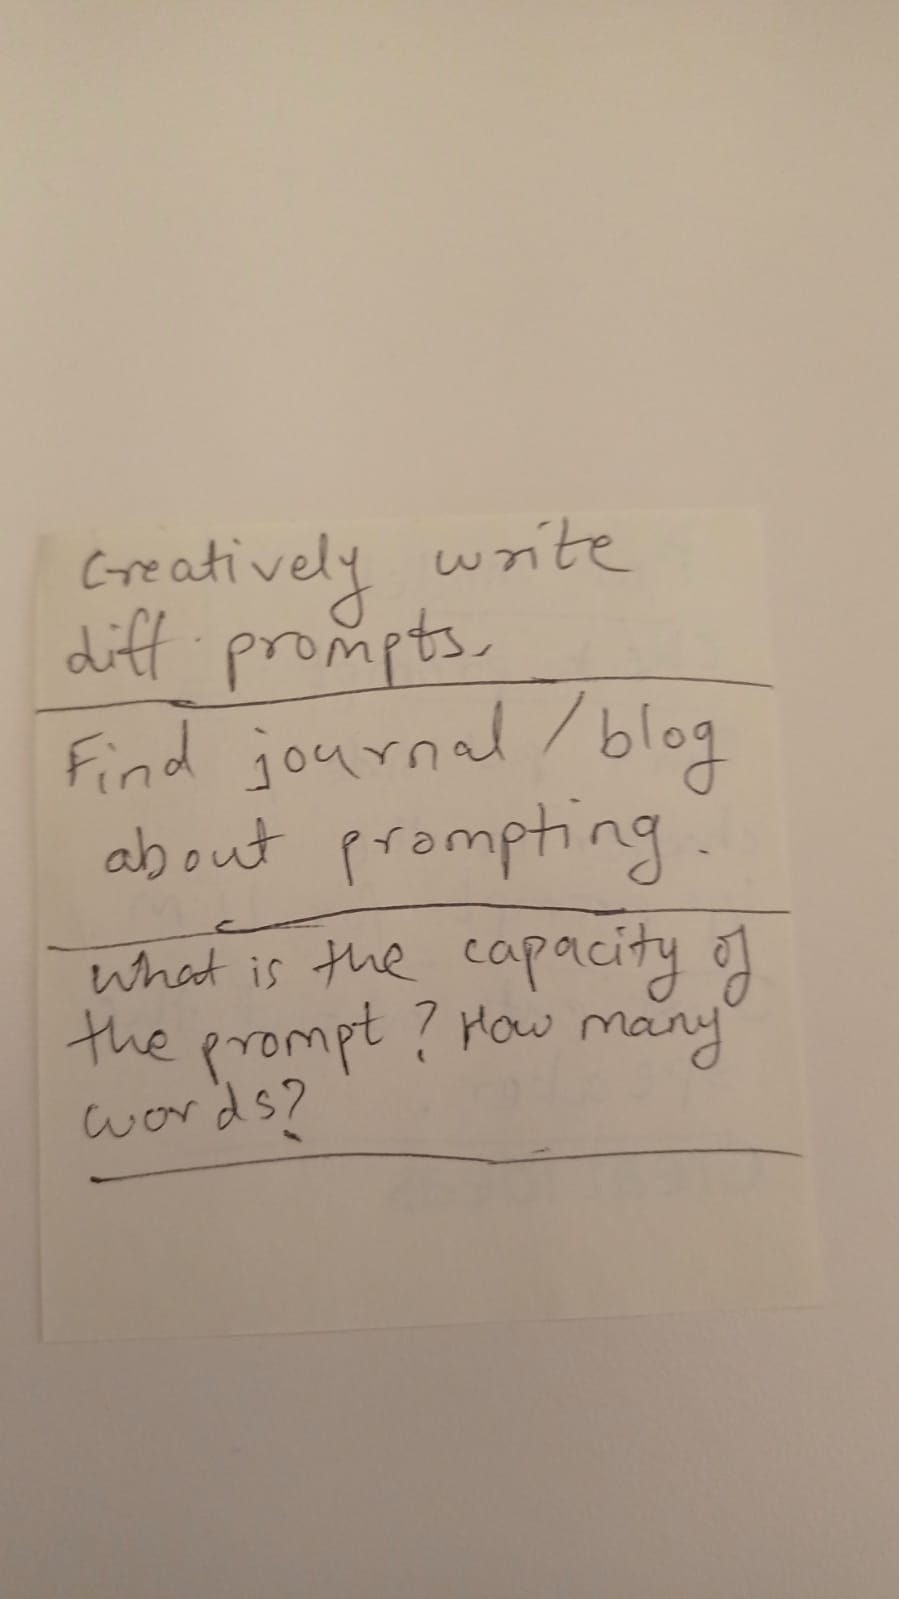 Creatively write
diff. prompts.
Find journal / blog
about prompting.
What is the capacity of
the prompt? How many
words?